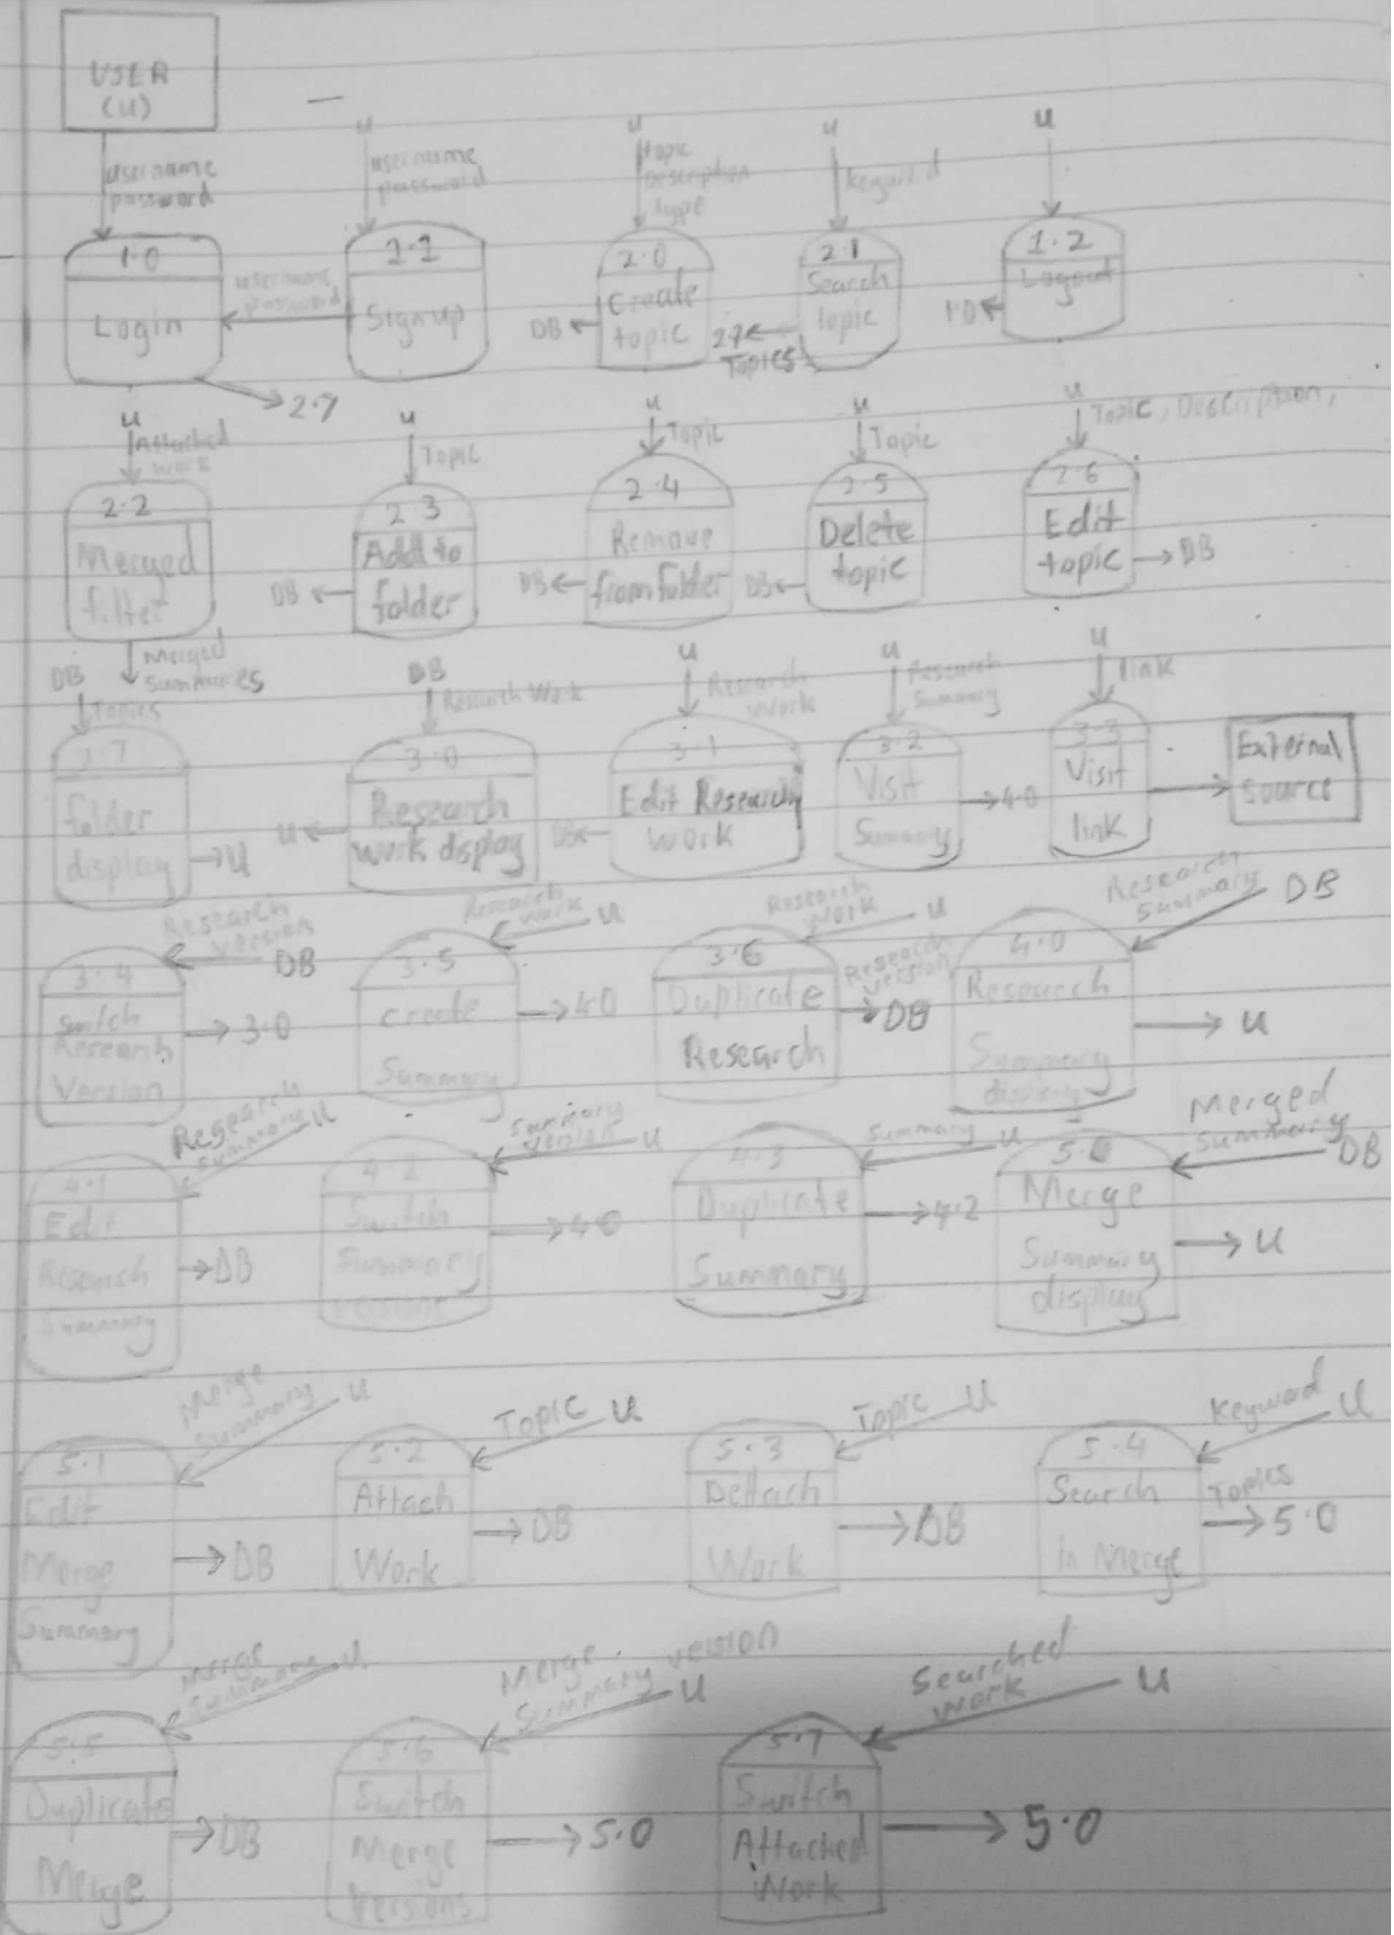 USER
(U)
username
password
1.0
Login
2.7
u
username
password
1.1
Sign up
username
password
u
topic
Description
type
2.0
Create
topic
DB
u
keyword
2.1
Search
topic
2.7
Topics
u
1.2
Logout
1.0
u
Attached
work
2.2
Merged
filter
Merged
Summaries
u
Topic
2.3
Add to
folder
DB
u
Topic
2.4
Remove
from folder
DB
u
Topic
2.5
Delete
topic
DB
u
Topic, Description,
2.6
Edit
topic
DB
DB
Topics
2.7
folder
display
u
DB
Research Work
3.0
Research
work display
u
u
Research
Work
3.1
Edit Research
work
DB
u
Research
Summary
3.2
Visit
Summary
4.0
u
link
3.3
Visit
link
External
source
Research
version
DB
3.4
Switch
Research
Version
3.0
Research
work
u
3.5
Create
Summary
4.0
Research
work
u
3.6
Duplicate
Research
Research
version
DB
Research
Summary
DB
4.0
Research
Summary
display
u
Research
Summary
u
4.1
Edit
Research
Summary
DB
Summary
version
u
4.2
Switch
Summary
versions
4.0
Summary
u
4.3
Duplicate
Summary
4.2
Merged
Summary
DB
5.0
Merge
Summary
display
u
Merge
Summary
u
5.1
Edit
Merge
Summary
DB
Topic
u
5.2
Attach
Work
DB
Topic
u
5.3
Dettach
Work
DB
Keyword
u
5.4
Search
in Merge
Topics
5.0
Merge
Summary
u
5.5
Duplicate
Merge
DB
Merge
Summary version
u
5.6
Switch
Merge
Versions
5.0
Searched
work
u
5.7
Switch
Attached
Work
5.0